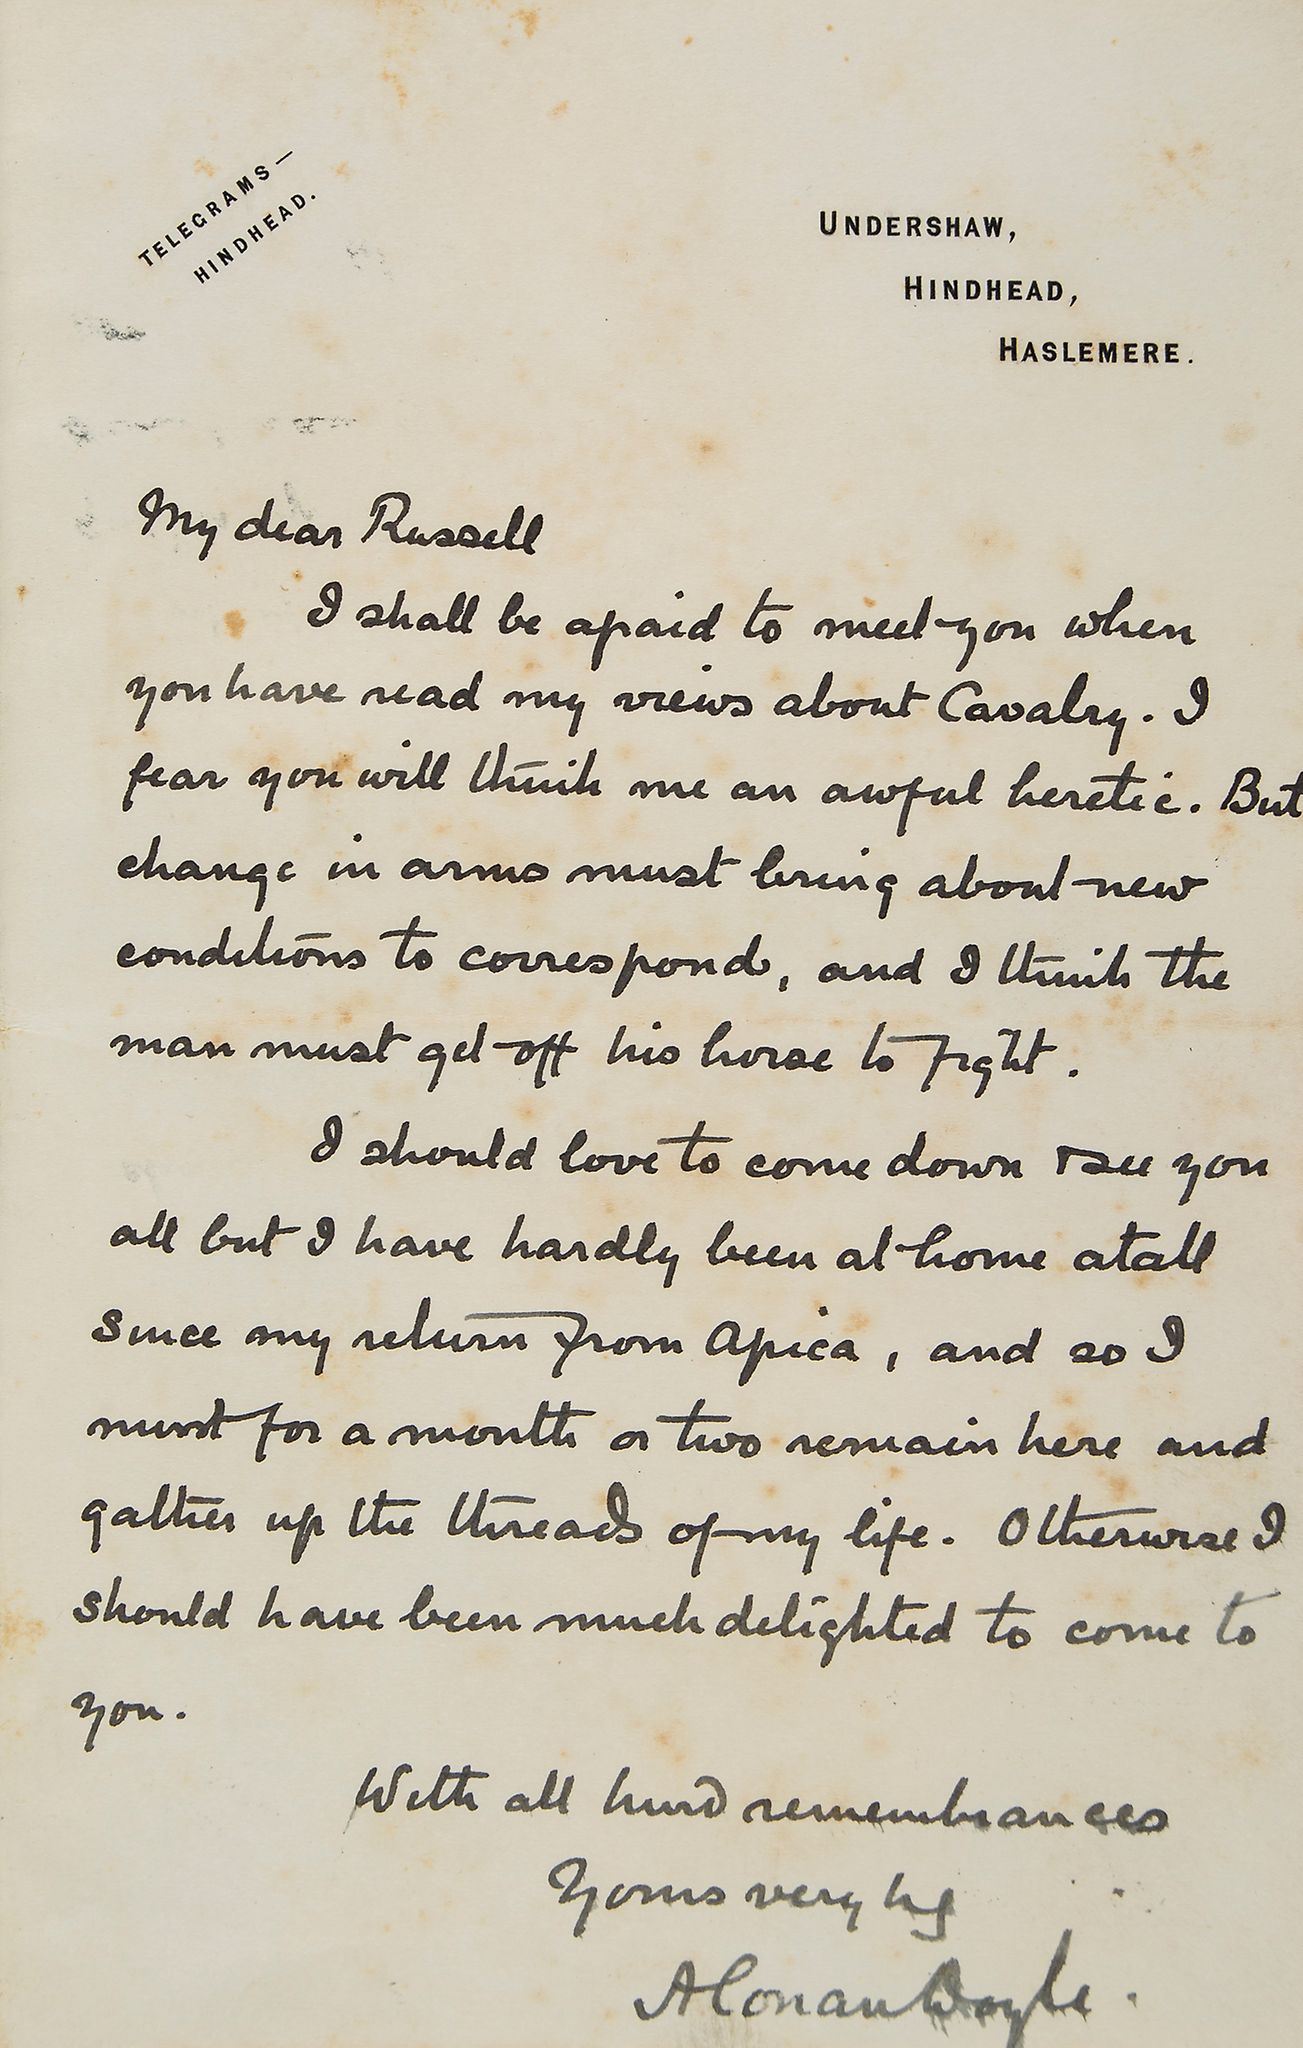 TELEGRAMS—
HINDHEAD.
UNDERSHAW,
HINDHEAD,
HASLEMERE.
My dear Russell
I shall be afraid to meet you when
you have read my views about Cavalry. I
fear you will think me an awful heretic. But
change in arms must bring about new
conditions to correspond, and I think the
man must get off his horse to fight.
I should love to come down & see you
all but I have hardly been at home at all
since my return from Africa, and so I
must for a month or two remain here and
gather up the threads of my life. Otherwise I
should have been much delighted to come to
you.
With all kind remembrances
Yours very try
A Conan Doyle.